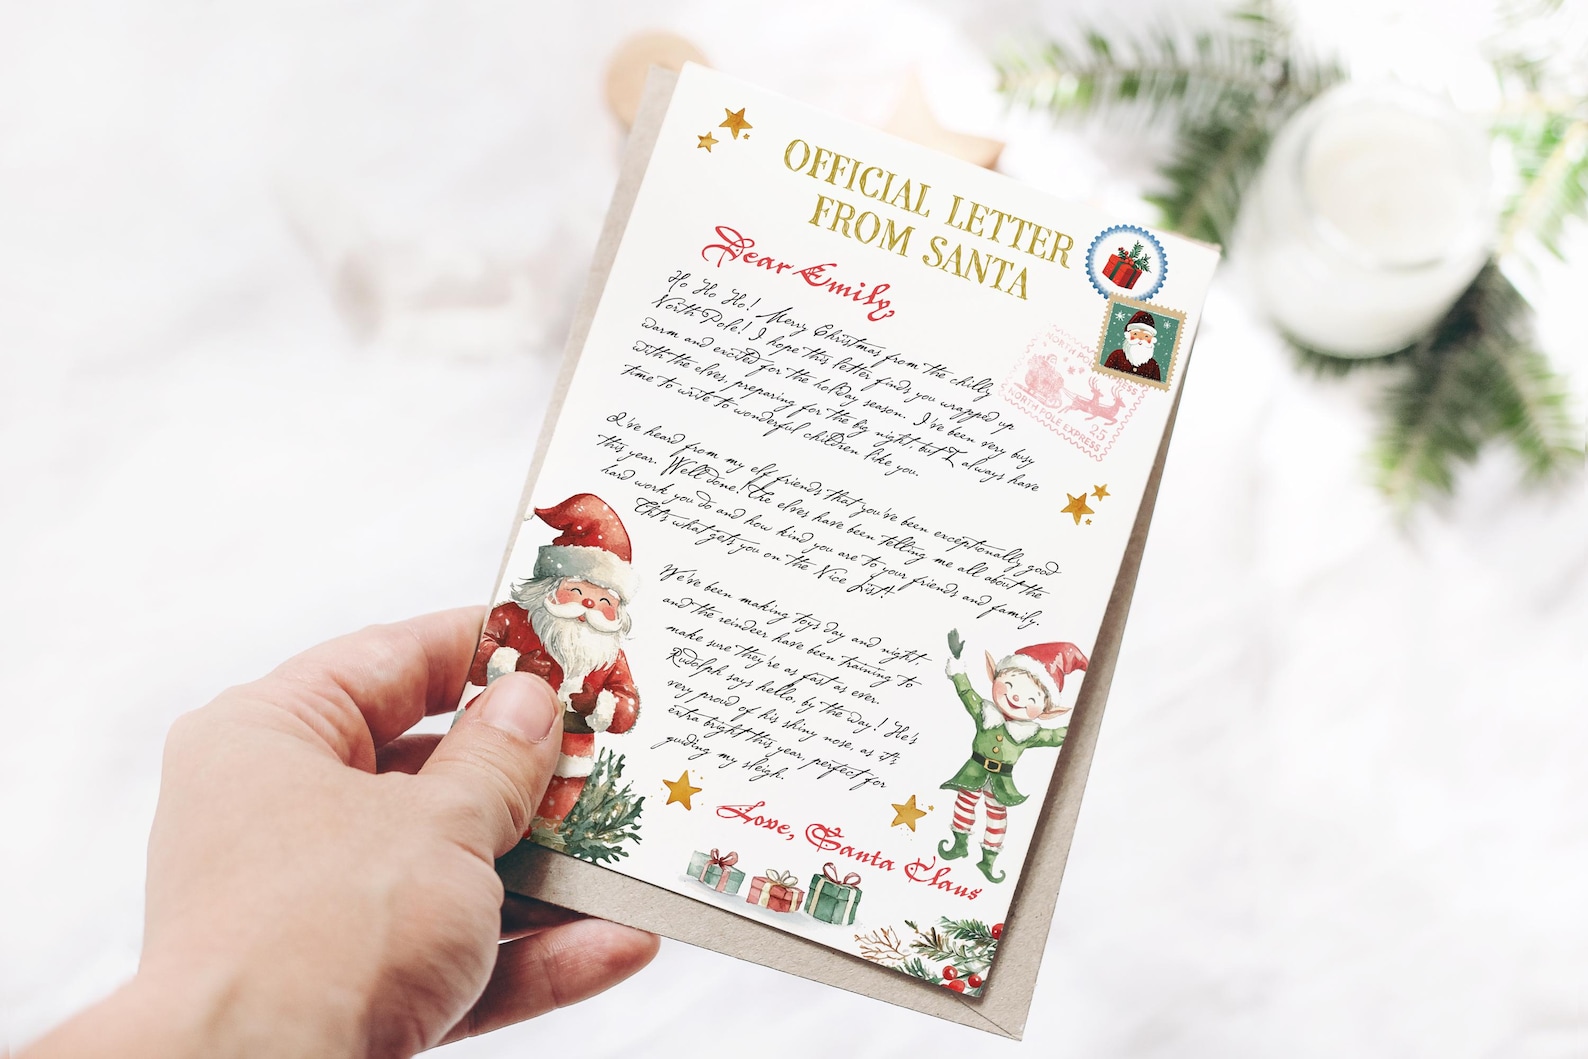 OFFICIAL LETTER
FROM SANTA
Dear Emily,
Ho Ho Ho! Merry Christmas from the chilly
North Pole! I hope this letter finds you wrapped up
warm and excited for the holiday season. I've been very busy
with the elves, preparing for the big night, but I always have
time to write to wonderful children like you.
I've heard from my elf friends that you've been exceptionally good
this year. Well done! The elves have been telling me all about the
hard work you do and how kind you are to your friends and family.
That's what gets you on the Nice List!
We've been making toys day and night,
and the reindeer have been training to
make sure they're as fast as ever.
Rudolph says hello, by the way! He's
very proud of his shiny nose, as it's
extra bright this year, perfect for
guiding my sleigh.
Love, Santa Claus
NORTH POLE EXPRESS
NORTH POLE EXPRESS
25